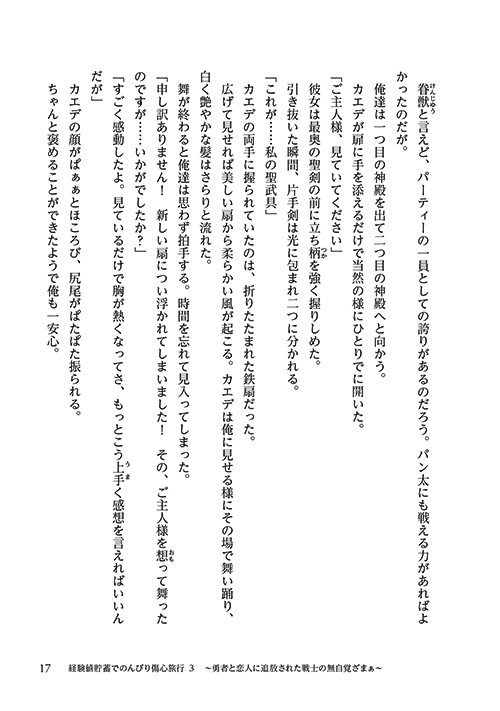 眷獣と言えど、パーティーの一員としての誇りがあるのだろう。パン太にも戦える力があればよ
かったのだが。
俺達は一つ目の神殿を出て二つ目の神殿へと向かう。
カエデが扉に手を添えるだけで当然の様にひとりでに開いた。
「ご主人様、見ていてください」
彼女は最奥の聖剣の前に立ち柄を強く握りしめた。
引き抜いた瞬間、片手剣は光に包まれ二つに分かれる。
「これが……私の聖武具」
カエデの両手に握られていたのは、折りたたまれた鉄扇だった。
広げて見せれば美しい扇から柔らかい風が起こる。カエデは俺に見せる様にその場で舞い踊り、
白く艶やかな髪はさらりと流れた。
舞が終わると俺達は思わず拍手する。時間を忘れて見入ってしまった。
「申し訳ありません！　新しい扇につい浮かれてしまいました！　その、ご主人様を想って舞った
のですが……いかがでしたか？」
「すごく感動したよ。見ているだけで胸が熱くなってさ、もっとこう上手く感想を言えればいいん
だが」
カエデの顔がぱぁぁとほころび、尻尾がぱたぱた振られる。
ちゃんと褒めることができたようで俺も一安心。
17　経験値貯蓄でのんびり傷心旅行 3　～勇者と恋人に追放された戦士の無自覚ざまぁ～